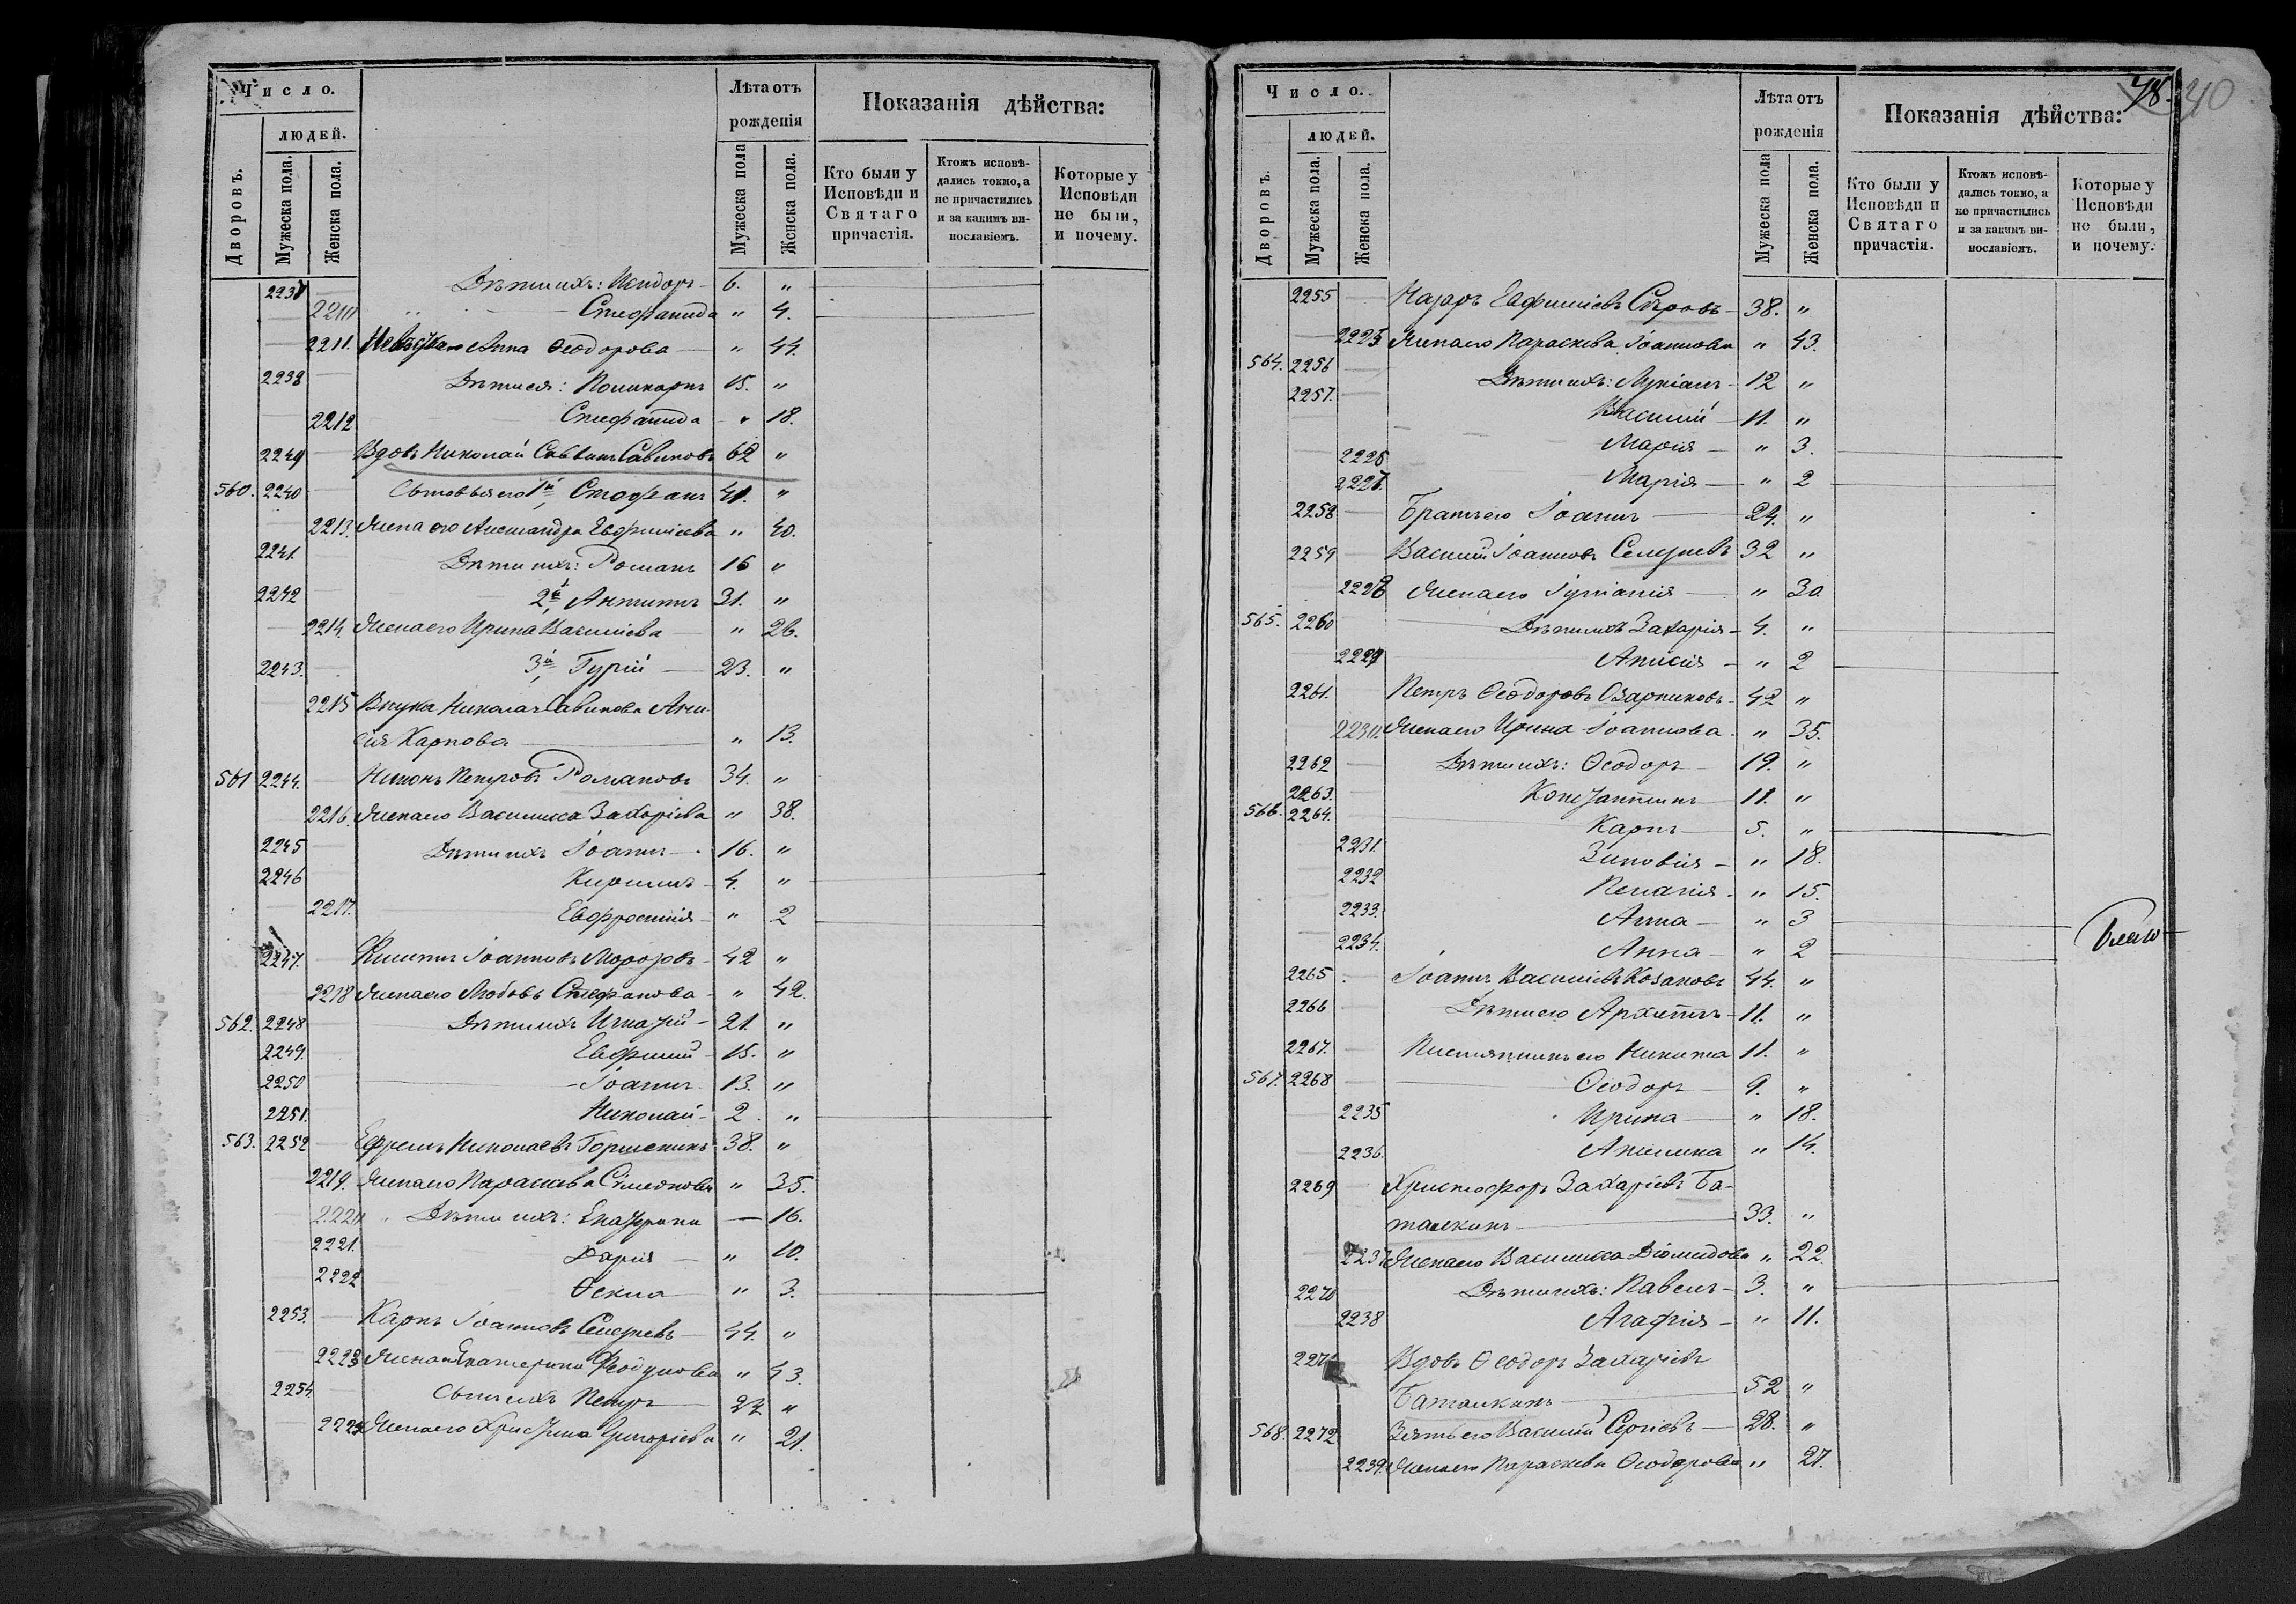 Число.
людей.
Дворовъ.
Мужеска пола.
Женска пола.
Лѣта отъ
рожденія
Мужеска пола
Женска пола.
Показанія дѣйства:
Кто были у
Исповѣди и
Святаго
причастія.
Ктожъ исповѣ-
дались токмо, а
не причастились
и за какимъ ви-
нословіемъ.
Которые у
Исповѣди
не были,
и почему.
Дѣти ихъ: Исидоръ 6. "
2210 Стефанида " 4.
2211. Анна Ѳеодорова " 44.
2238 Дѣти ея: Поликарпъ 15. "
2212 Стефанида " 18.
Вдовъ Николай Саввинъ Савиновъ 62 "
560. 2240 Сыновья его 1й Стефанъ 41. "
2213. Жена его Александра Евфиміева " 40.
2241. Дѣти ихъ: Романъ 16 "
2242 2й Антипъ 31. "
2214. Жена его Ирина Василіева " 26.
2243. 3й Гурій 23. "
2215 Внука Николая Савинова Ани-
сія Карпова " 13.
561 2244. Никонъ Петровъ Романовъ 34. "
2216. Жена его Василисса Захаріева " 38.
2245 Дѣти ихъ Іоаннъ 16. "
2246 Кириллъ 4. "
2217. Евфросинія " 2
2247. Филиппъ Іоанновъ Морозовъ 42 "
2218 Жена его Любовь Стефанова " 42.
562. 2248 Дѣти ихъ Игнатій 21. "
2249. Евфимій 15. "
2250 Іоаннъ 13. "
2251. Николай 2. "
563. 2252 Ефремъ Николаевъ Горшенинъ 38. "
2219. Жена его Параскева Симеонова " 35.
2220 Дѣти ихъ: Екатерина — 16.
2221. Дарія " 10.
2222 Ѳекла " 3.
2253. Карпъ Іоанновъ Селезневъ 44. "
2223 Жена его Екатерина " 43.
2254. Сынъ ихъ Петръ 22 "
2224 Жена его Христина Григоріева " 21.
48. 40
Число.
людей.
Дворовъ.
Мужеска пола.
Женска пола.
Лѣта отъ
рожденія
Мужеска пола
Женска пола.
Показанія дѣйства:
Кто были у
Исповѣди и
Святаго
причастія.
Ктожъ исповѣ-
дались токмо, а
не причастились
и за какимъ ви-
нословіемъ.
Которые у
Исповѣди
не были,
и почему.
2255 Назаръ Евфиміевъ Сѣровъ 38. "
2225 Жена его Параскева Іоаннова " 43.
564. 2256 Дѣти ихъ: Лукіанъ 12 "
2257. Василій 11. "
2226 Марія " 3.
2227. Марія " 2
2258 Братъ его Іоаннъ 24. "
2259 Василій Іоанновъ Селезневъ 32 "
2228 Жена его Іуліанія " 30
565. 2260 Дѣти ихъ Захарія 4. "
2229 Анисія " 2
2261. Петръ Ѳеодоровъ Озарниковъ 42 "
2230. Жена его Ирина Іоаннова " 35.
2262 Дѣти ихъ: Ѳеодоръ 19. "
2263. Константинъ 11. "
566. 2264. Карпъ 5. "
2231. Зиновія " 18.
2232 Пелагія " 15.
2233. Анна " 3
2234. Анна " 2
2265 Іоаннъ Василіевъ Козаковъ 44. "
2266 Дѣти его Архиппъ 11. "
2267. Племянникъ его Никита 11. "
567. 2268 Ѳеодоръ 9. "
2235 Ирина " 18.
2236. Акилина " 14.
2269 Христофоръ Захаріевъ Ба-
талкинъ 33. "
2237 Жена его Василисса Діомидова " 22.
2270 Дѣти ихъ: Павелъ 3. "
2238 Агафія " 11.
2271 Вдовъ Ѳеодоръ Захаріевъ
Баталкинъ 52 "
568. 2272 Зять его Василій Сергіевъ 28. "
2239. Жена его Параскева Ѳеодорова " 27.